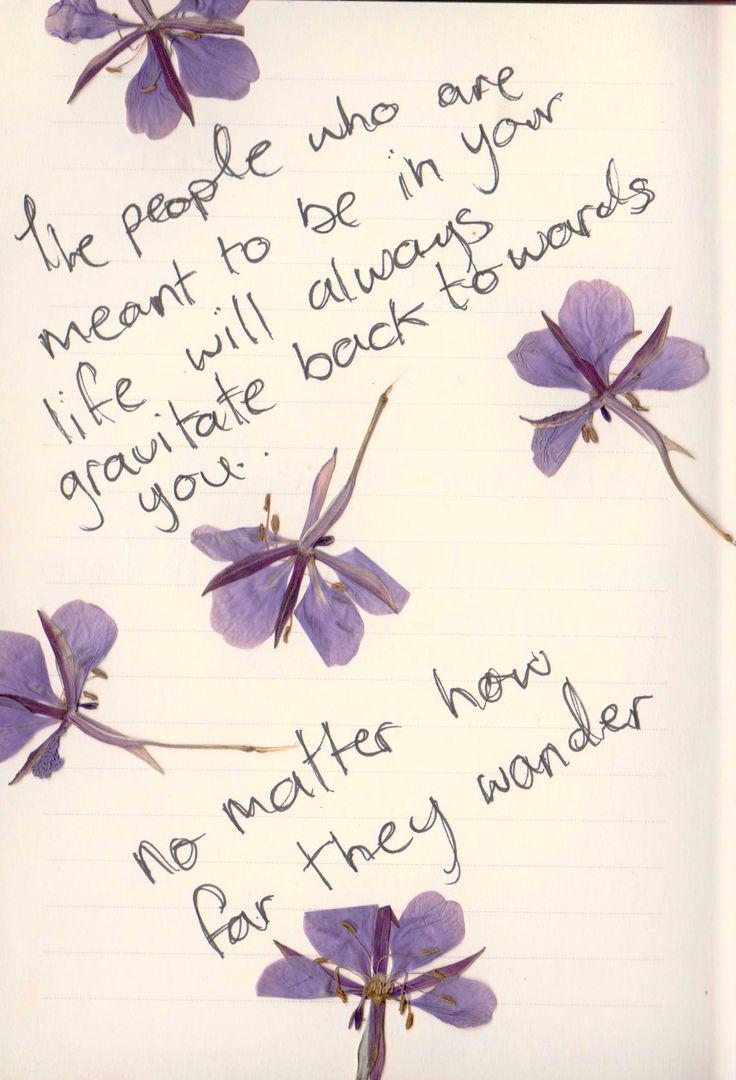 The people who are
meant to be in your
life will always
gravitate back towards
you..
no matter how
far they wander